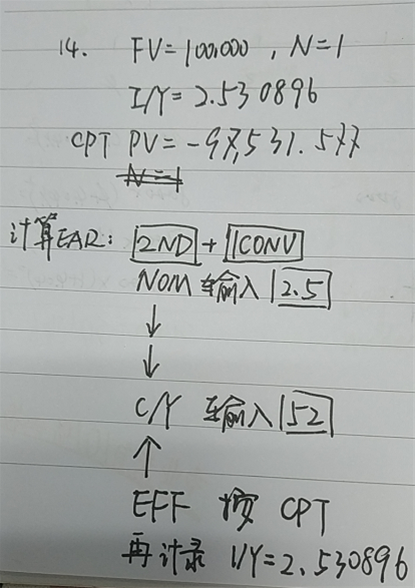 14. FV=100,000 , N=1
I/Y=2.530896
CPT PV=-97,531.577
N=1
计算EAR: 2ND + ICONV
NOM 输入 2.5
↓
↓
C/Y 输入 52
↑
EFF 按 CPT
再记录 I/Y=2.530896